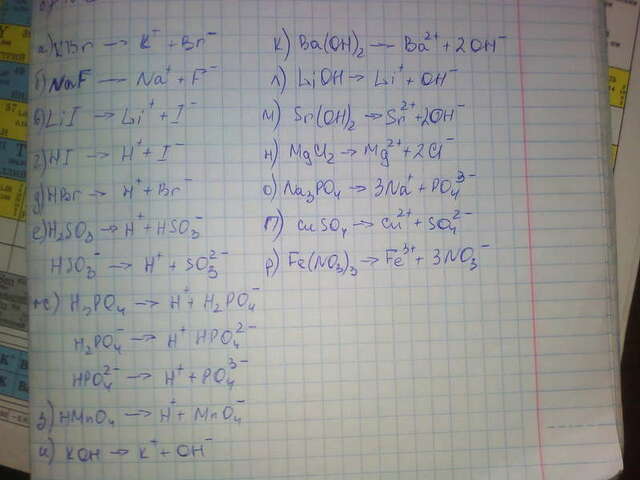 а) KBr → K⁺ + Br⁻
б) NaF — Na⁺ + F⁻
в) LiI → Li⁺ + I⁻
г) HI → H⁺ + I⁻
д) HBr → H⁺ + Br⁻
е) H₂SO₃ → H⁺ + HSO₃⁻
HSO₃⁻ → H⁺ + SO₃²⁻
ж) H₃PO₄ → H⁺ + H₂PO₄⁻
H₂PO₄⁻ → H⁺ HPO₄²⁻
HPO₄²⁻ → H⁺ + PO₄³⁻
з) HMnO₄ → H⁺ + MnO₄⁻
и) KOH → K⁺ + OH⁻
к) Ba(OH)₂ — Ba²⁺ + 2OH⁻
л) LiOH → Li⁺ + OH⁻
м) Sr(OH)₂ → Sr²⁺ + 2OH⁻
н) MgCl₂ → Mg²⁺ + 2Cl⁻
о) Na₃PO₄ → 3Na⁺ + PO₄³⁻
п) CuSO₄ → Cu²⁺ + SO₄²⁻
р) Fe(NO₃)₃ → Fe³⁺ + 3NO₃⁻